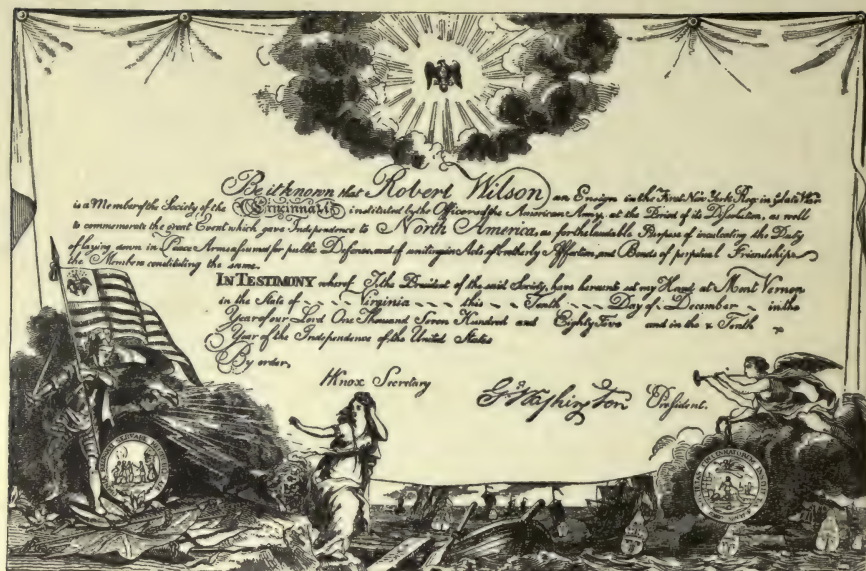 Be it known that Robert Wilson an Ensign in the First New York Reg: in ye late War
is a Member of the Society of the Cincinnati instituted by the Officers of the American Army, at the Period of its Dissolution, as well
to commemorate the great Event which gave Independence to North America, as for the laudable Purpose of inculcating the Duty
of laying down in Peace Arms assumed for public Defence, and of uniting in Acts of brotherly Affection, and Bonds of perpetual Friendship
the Members constituting the same.
IN TESTIMONY whereof I, the President of the said Society, have hereunto set my Hand at Mount Vernon
in the State of Virginia this Tenth Day of December in the
Year of our Lord One Thousand Seven Hundred and Eighty Five and in the Tenth
Year of the Independence of the United States
By order,
HKnox Secretary
Go Washington President.
OMNIA SERVARE REMPUBLICAM
SOCIETAS CINCINNATORUM INSTITUTA